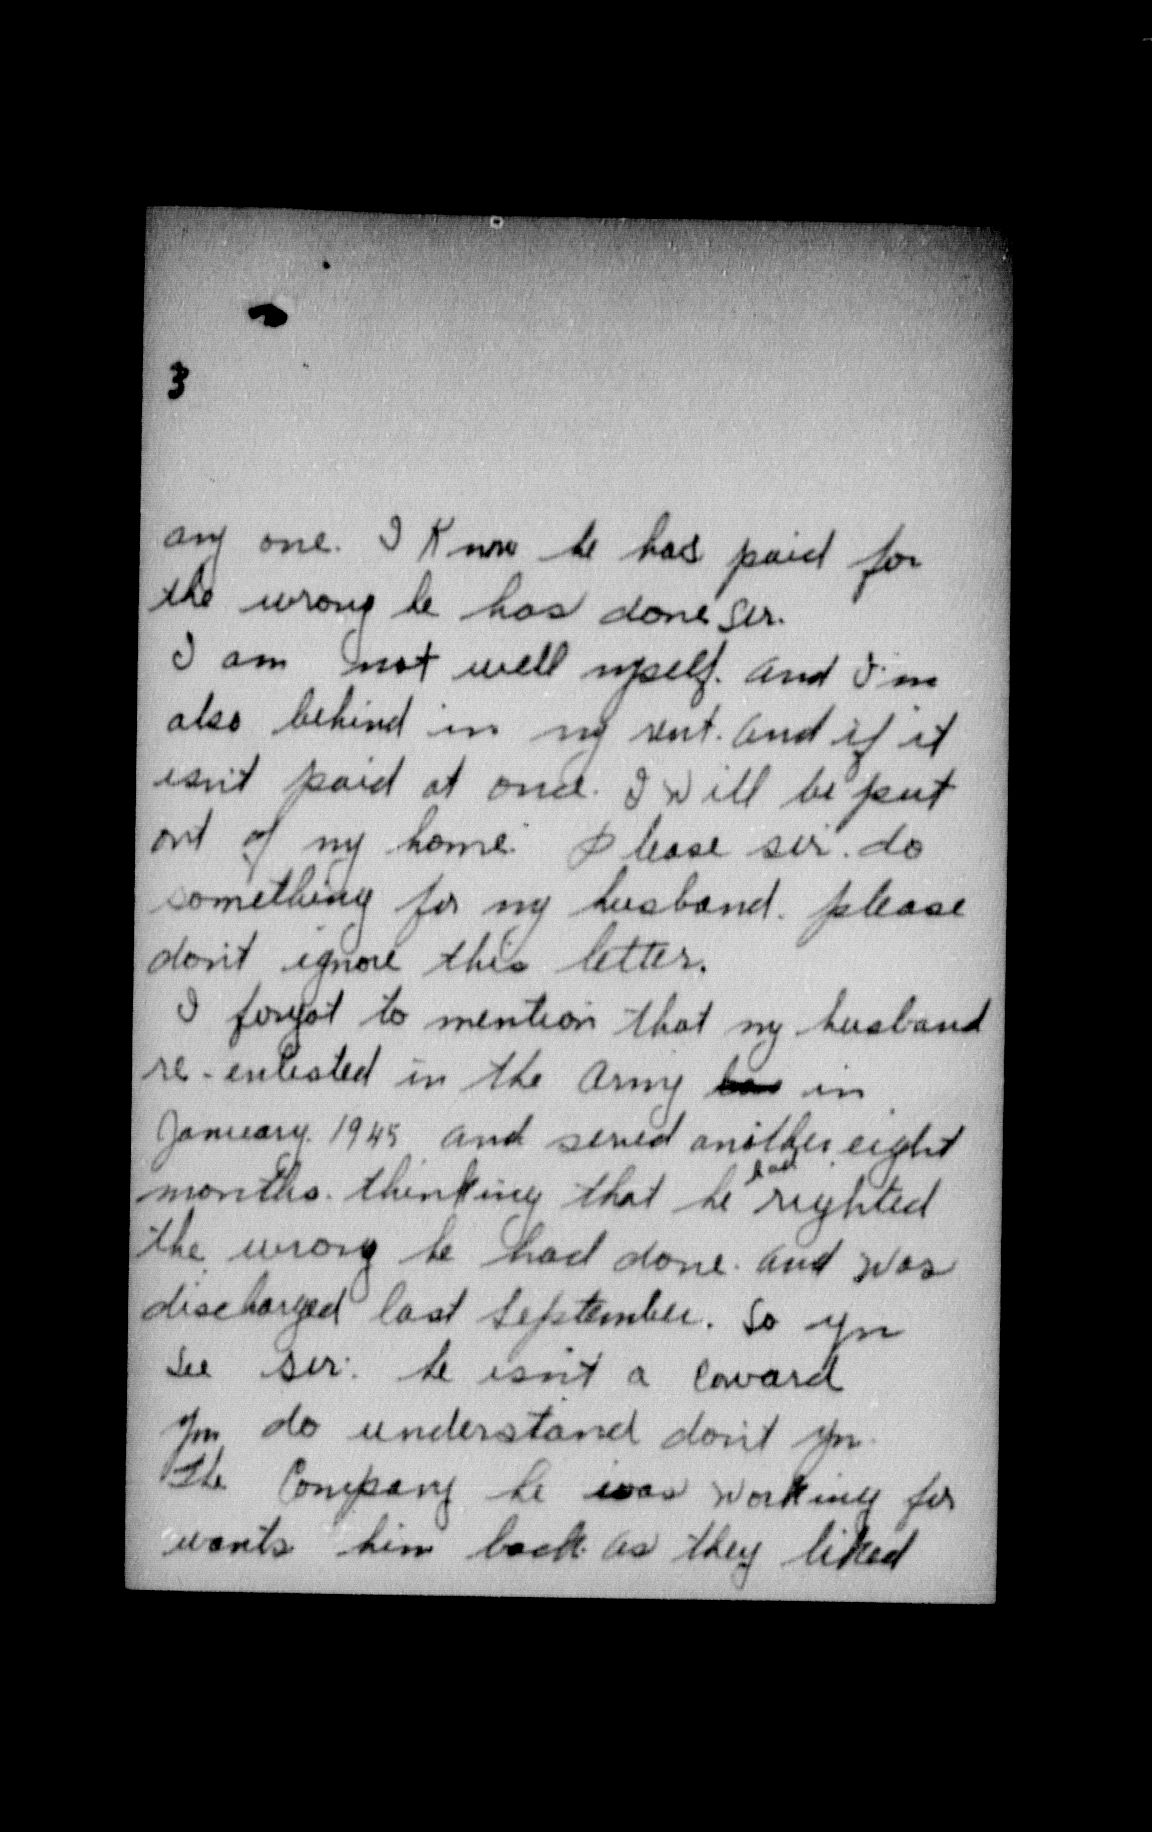 3
any one. I Know he has paid for
the wrong he has done Sir.
I am not well myself. and I'm
also behind in my rent. and if it
isn't paid at once. I will be put
out of my home. Please sir. do
something for my husband. please
don't ignore this letter.
I forgot to mention that my husband
re-enlisted in the Army in
January. 1945 and served another eight
months. thinking that he had righted
the wrong he had done. and was
discharged last September. So you
see sir. he isn't a Coward
you do understand don't you.
The Company he was working for
wants him back. as they liked